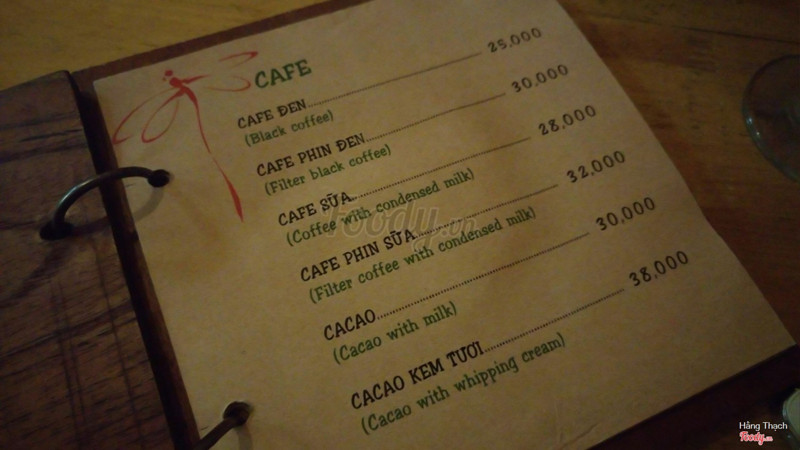 CAFE
CAFE ĐEN 25,000
(Black coffee)
CAFE PHIN ĐEN 30,000
(Filter black coffee)
CAFE SỮA 28,000
(Coffee with condensed milk)
CAFE PHIN SỮA 32,000
(Filter coffee with condensed milk)
CACAO 30,000
(Cacao with milk)
CACAO KEM TƯƠI 38,000
(Cacao with whipping cream)
foody.vn
Hằng Thạch
Foody.vn